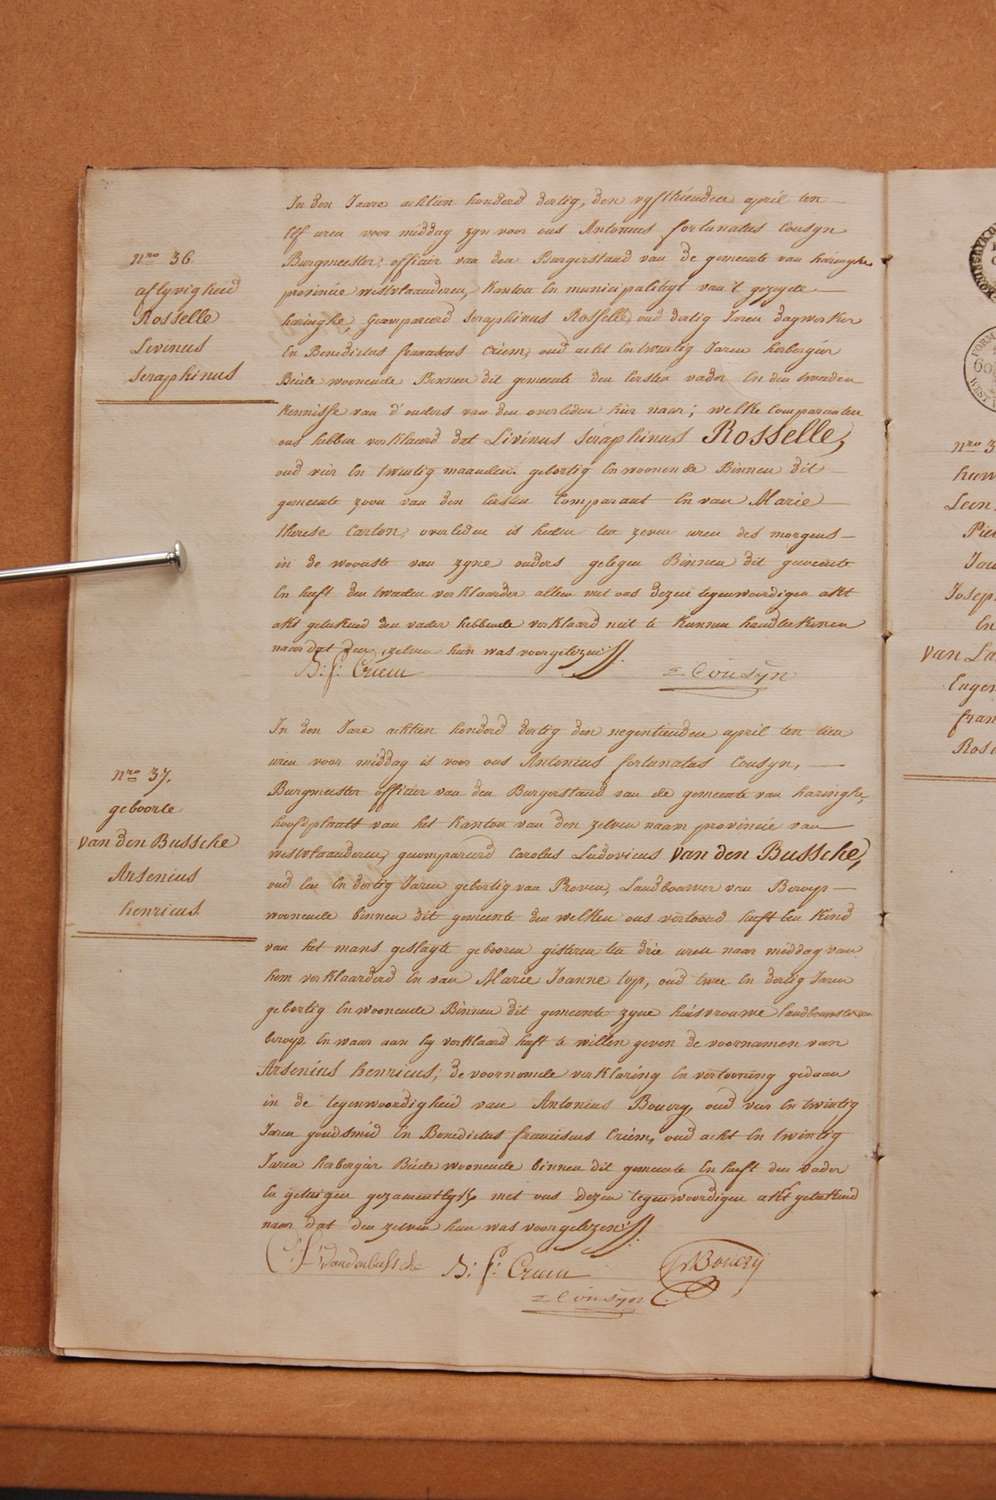 nro 36.
aflyvigheid
Rosselle
Livinus
Seraphinus
In den Jaare achtien honderd dertig, den vyfthienden april ten
Elf uren voor middag zyn voor ons Antonius fortunatus Cousyn
Burgmeester, officier van den Burgerstand van de gemeente van haringhe
provincie westvlaanderen, Kanton En municipaliteyt van 't gezegde
haringhe, Gecompareerd Seraphinus Rosselle, oud dertig Jaren dagwerker
En Benedictus franciscus Criem, oud acht En twintig Jaren herbergier
Beide woonende Binnen dit gemeente den Eersten vader En den tweeden
Kennisse van d'ouders van den overleden hier naar; welke Comparanten
ons hebben verklaerd dat Livinus Seraphinus Rosselle,
oud vier En twintig maanden. gebortig En woonende Binnen dit
gemeente zoon van den Eersten Comparant En van Marie
therese Carton, overleden is heden ten zeven uren des morgens
in de woonste van zyne ouders gelegen Binnen dit gemeente
En heeft den tweeden verklaarder alleen met ons dezen tegenwoordigen akt
akt geteekend den vader hebbende verklaard niet te Kunnen handteekenen
naar dat den zelven hun was voorgelezen
B: f: Criem
Cousyn
nro 37.
geboorte
van den Bussche
Arsenius
henricus.
In den Jare achtien honderd dertig den negentienden april ten tien
uren voor middag is voor ons Antonius fortunatus Cousyn,
Burgmeester officier van den Burgerstand van de gemeente van haringhe,
hoofdplaats van het Kanton van den zelven naam provincie van
westvlaanderen, gecompareerd Carolus Ludovicus van den Bussche,
oud Een En dertig Jaren gebortig van Proven, Landbouwer van Beroep
woonende binnen dit gemeente den welken ons vertoond heeft Een Kind
van het mans geslagte geboren gisteren ten drie uren naar middag van
hem verklaarderd En van Marie Joanne Top, oud twee En dertig Jaren
gebortig En woonende Binnen dit gemeente zyne huisvrouwe landbouwster van
beroep En waar aan hy verklaard heeft te willen geven de voornamen van
Arsenius henricus, de voornoemde verklaring En vertooning gedaan
in de tegenwoordigheid van Antonius Boucry, oud vier En twintig
Jaren goudsmid En Benedictus franciscus Criem, oud acht En twintig
Jaren herbergier Beide woonende binnen dit gemeente En heeft den vader
En getuigen gezamentlyk met ons dezen tegenwoordigen akt geteekend
naar dat den zelven hun was voorgelezen
Vandenbussche
B: f: Criem
Boucry
Cousyn
nro 3
Leon
Pie
Joseph
En
van La
Eugen
fran
Rose